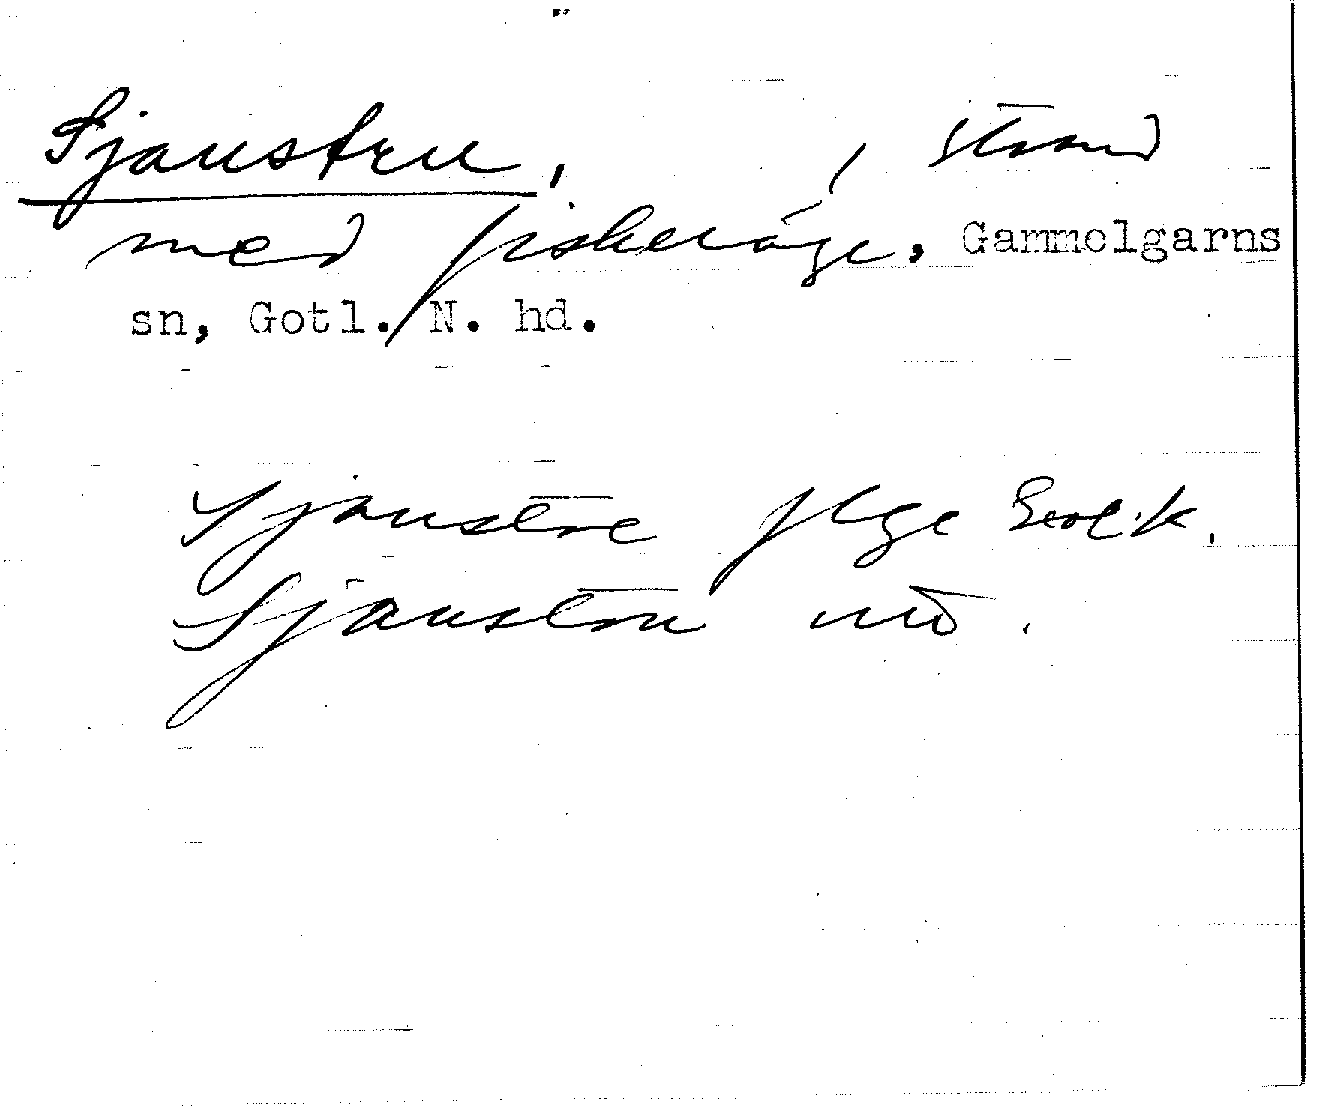 Sjaustru, , strand
med fiskeläge, Gammelgarns
sn, Gotl. N. hd.
Sjaustre flge Geol.k.
Sjaustru udd.